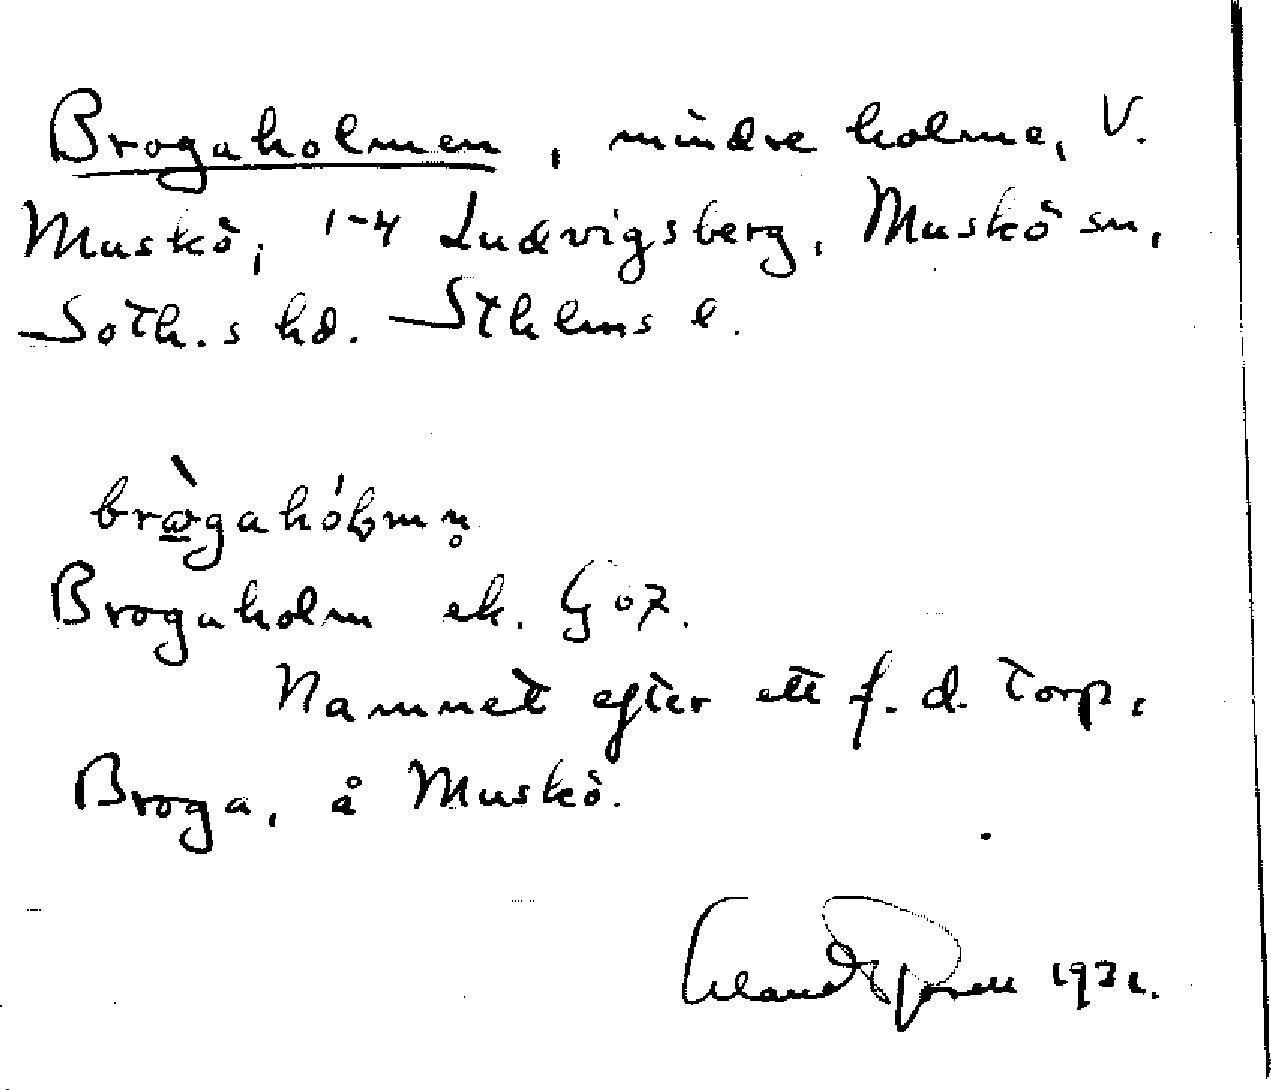 Brogaholmen, mindre holme, V.
Muskö, 1-4 Ludvigsberg, Muskö sn,
Soth.s hd. Sthlms l.
Brogaholm ek. G 07.
Namnet efter ett f. d. torp,
Broga, å Muskö.